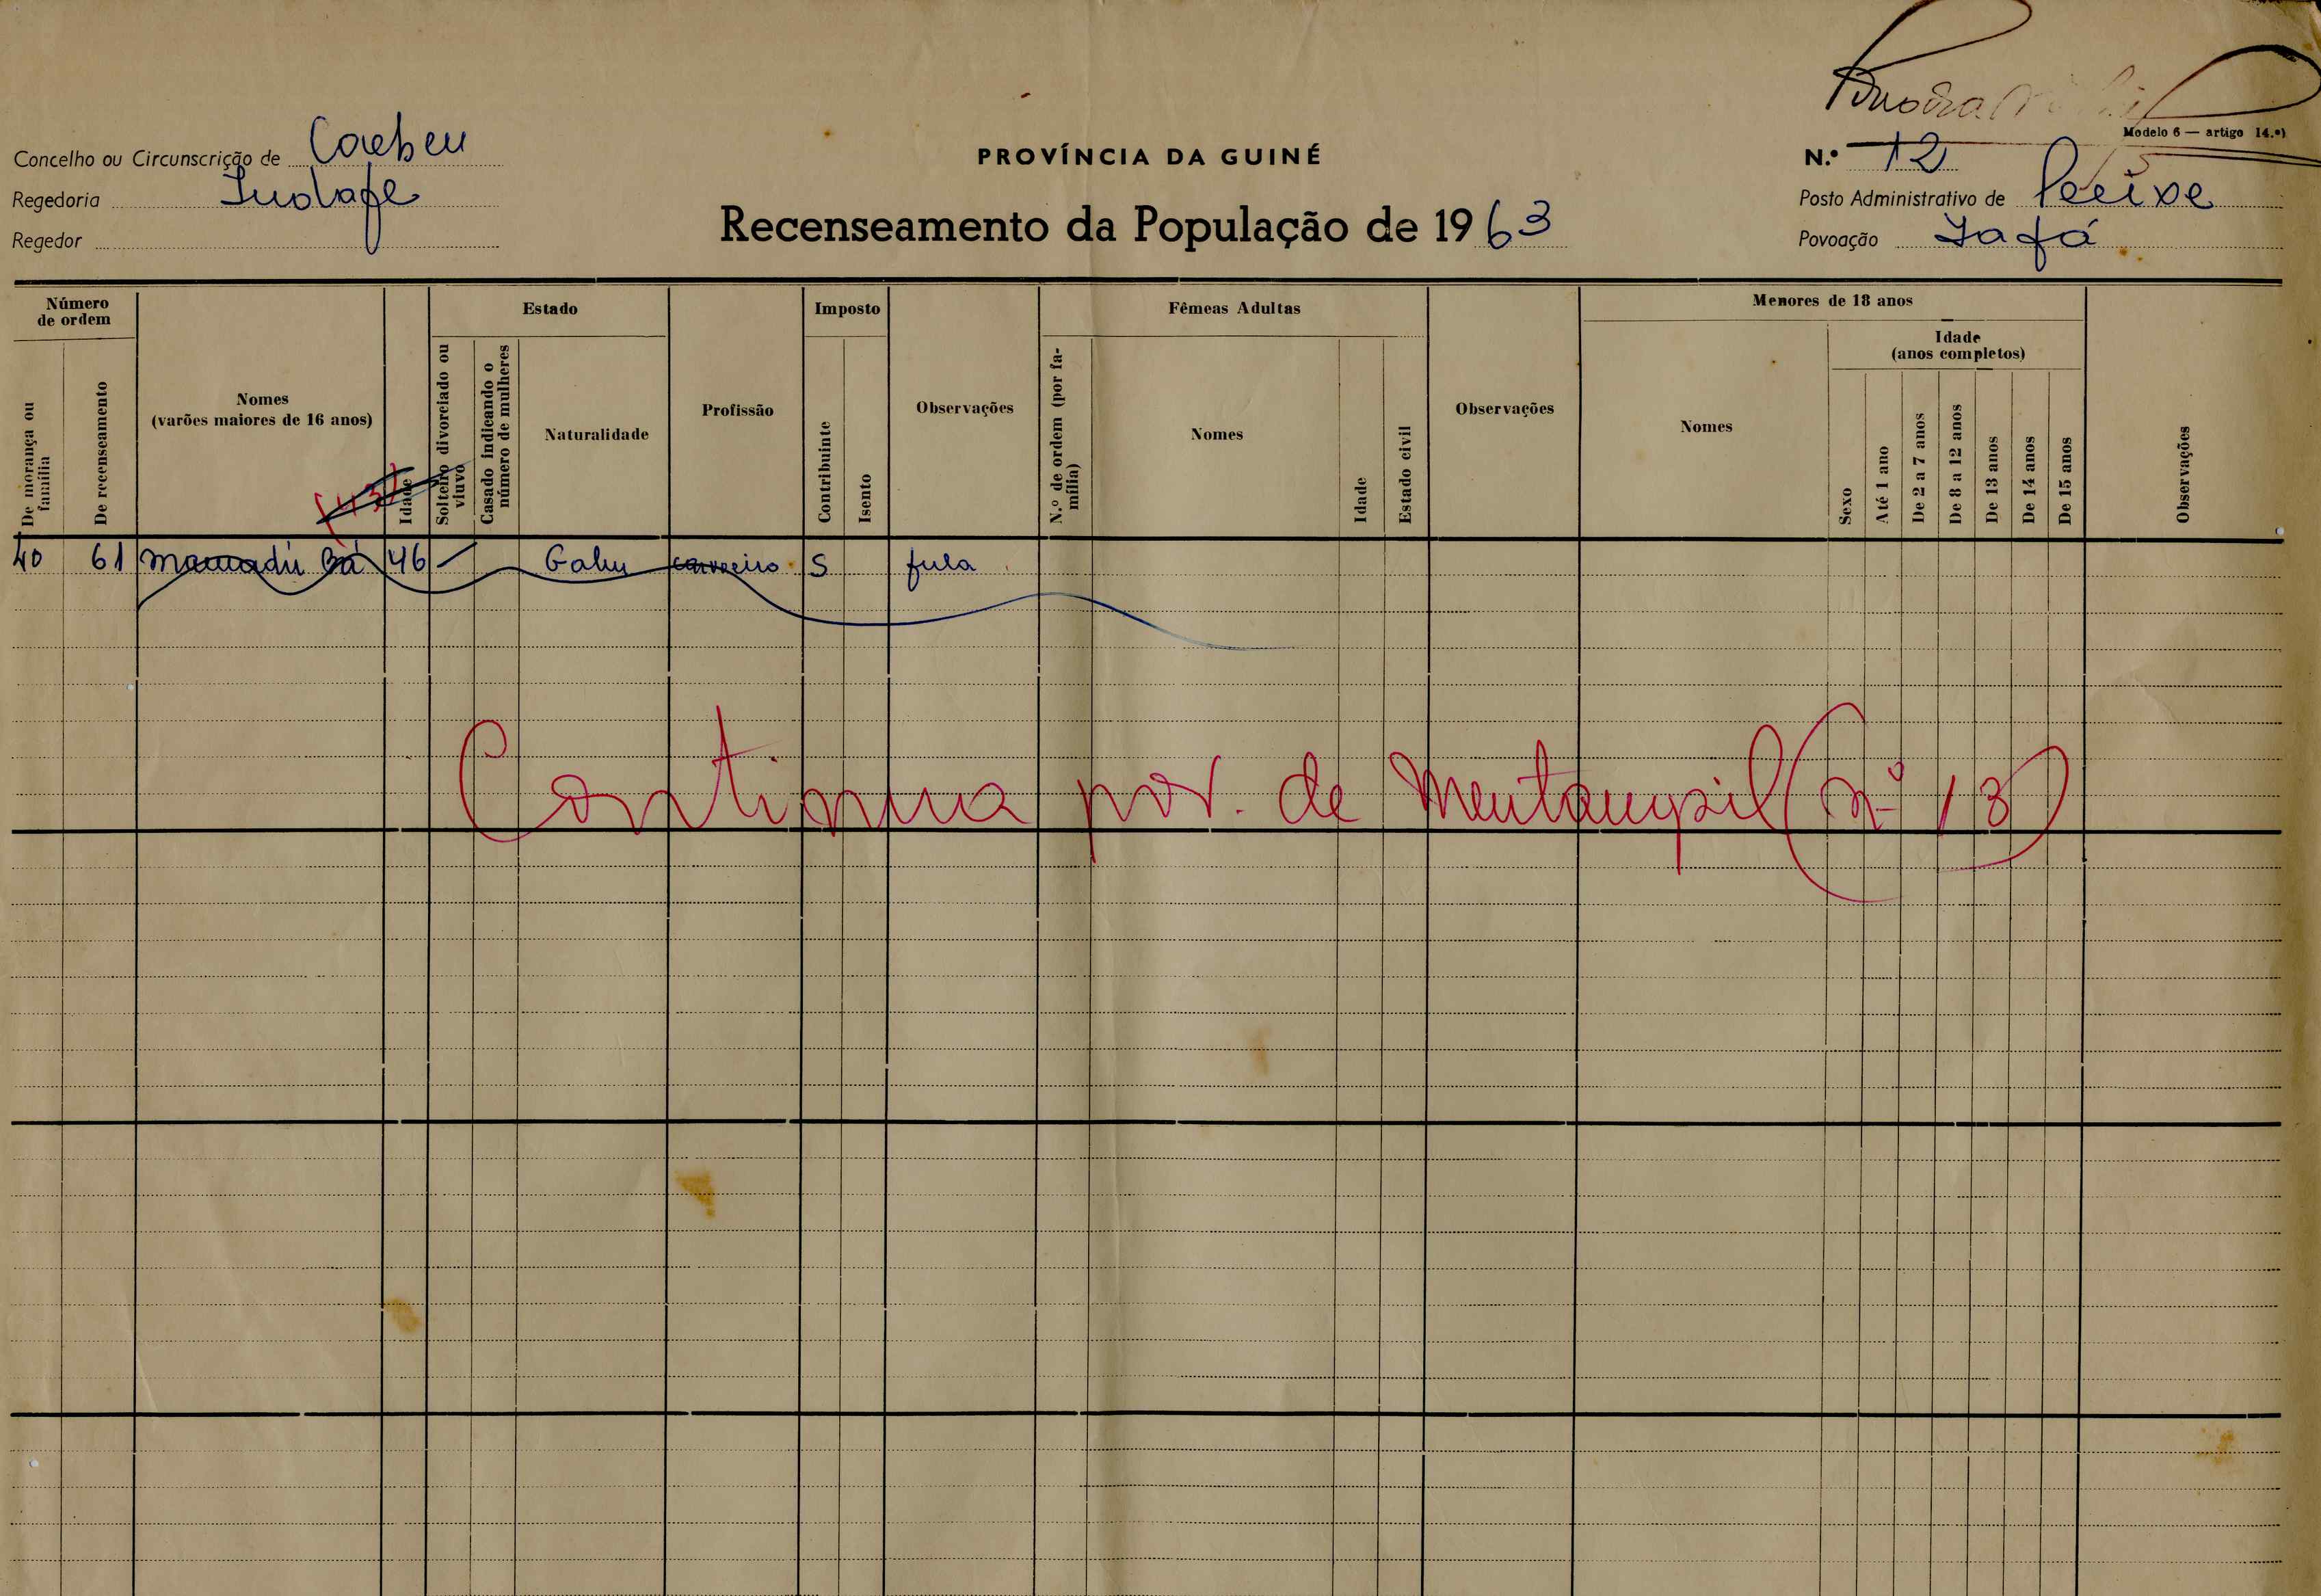 Modelo 6 — artigo 14.º)
Concelho ou Circunscrição de Cacheu
PROVÍNCIA DA GUINÉ
N.º 12
Regedoria
Posto Administrativo de Pecixe
Recenseamento da População de 1963
Regedor
Povoação Jafá
Número de ordem
Estado
Imposto
Fêmeas Adultas
Menores de 18 anos
De morança ou família
De recenseamento
Nomes (varões maiores de 16 anos)
Idade
Solteiro divorciado ou viuvo
Casado indicando o número de mulheres
Naturalidade
Profissão
Contribuinte
Isento
Observações
N.º de ordem (por família)
Nomes
Idade
Estado civil
Observações
Nomes
Sexo
Idade (anos completos)
Até 1 ano
De 2 a 7 anos
De 8 a 12 anos
De 13 anos
De 14 anos
De 15 anos
Observações
(43)
40 61 Mamadú Bá 46 — Gabu S fula
Continua pov. de Mentampil (nº 13)